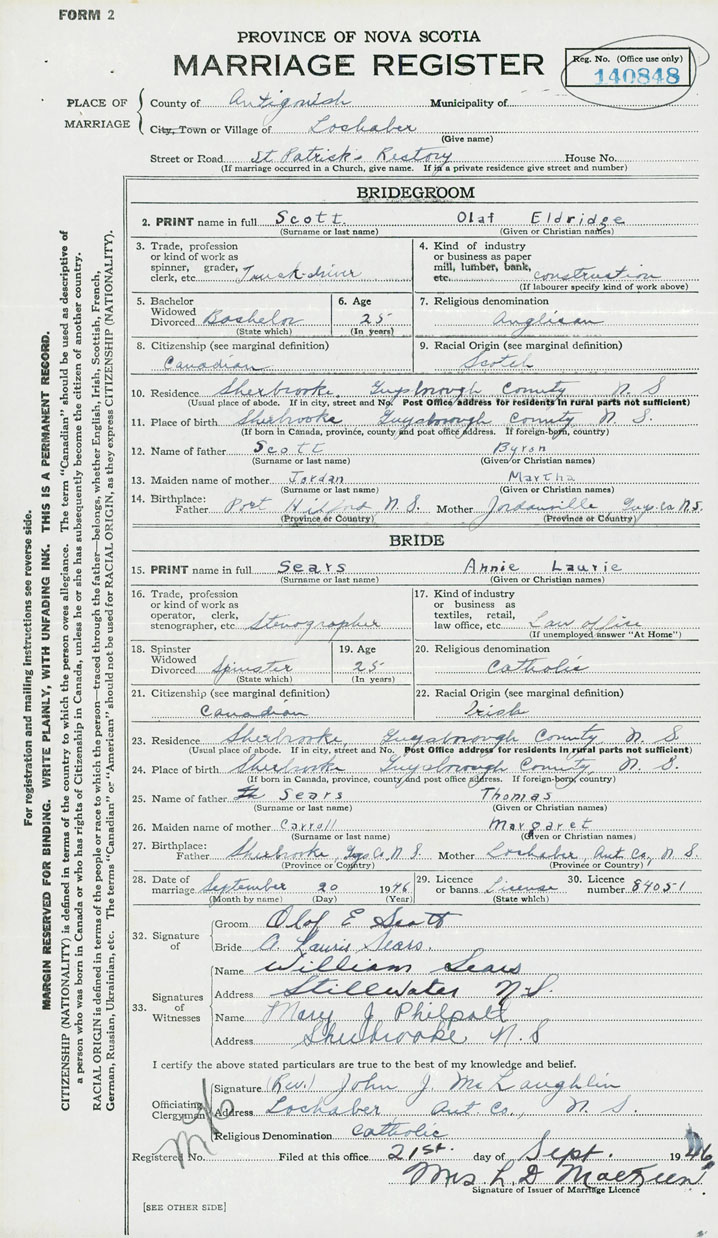 FORM 2
PROVINCE OF NOVA SCOTIA
MARRIAGE REGISTER
Reg. No. (Office use only)
140848
PLACE OF MARRIAGE
County of Antigonish Municipality of
City, Town or Village of Lochaber
(Give name)
Street or Road St Patrick's Rectory House No.
(If marriage occurred in a Church, give name. If in a private residence give street and number)
BRIDEGROOM
2. PRINT name in full Scott Olaf Eldridge
(Surname or last name) (Given or Christian names)
3. Trade, profession or kind of work as spinner, grader, clerk, etc. Truck-driver
4. Kind of industry or business as paper mill, lumber, bank, etc. construction
(If labourer specify kind of work above)
5. Bachelor Widowed Divorced Bachelor
(State which)
6. Age 25
(In years)
7. Religious denomination
Anglican
8. Citizenship (see marginal definition)
Canadian
9. Racial Origin (see marginal definition)
Scotch
10. Residence Sherbrooke Guysborough County N S
(Usual place of abode. If in city, street and No. Post Office address for residents in rural parts not sufficient)
11. Place of birth Sherbrooke Guysborough County N. S.
(If born in Canada, province, county and post office address. If foreign-born, country)
12. Name of father Scott Byron
(Surname or last name) (Given or Christian names)
13. Maiden name of mother Jordan Martha
(Surname or last name) (Given or Christian names)
14. Birthplace:
Father Port Hilford, N. S. Mother Jordanville Guys. Co N.S.
(Province or Country) (Province or Country)
BRIDE
15. PRINT name in full Sears Annie Laurie
(Surname or last name) (Given or Christian names)
16. Trade, profession or kind of work as operator, clerk, stenographer, etc. Stenographer
17. Kind of industry or business as textiles, retail, law office, etc. Law office
(If unemployed answer "At Home")
18. Spinster Widowed Divorced Spinster
(State which)
19. Age 25
(In years)
20. Religious denomination
Catholic
21. Citizenship (see marginal definition)
Canadian
22. Racial Origin (see marginal definition)
Irish
23. Residence Sherbrooke Guysborough County N. S.
(Usual place of abode. If in city, street and No. Post Office address for residents in rural parts not sufficient)
24. Place of birth Sherbrooke Guysborough County, N. S.
(If born in Canada, province, county and post office address. If foreign-born, country)
25. Name of father Sears Thomas
(Surname or last name) (Given or Christian names)
26. Maiden name of mother Carroll Margaret
(Surname or last name) (Given or Christian names)
27. Birthplace:
Father Sherbrooke, Guys Co, N. S. Mother Lochaber, Ant. Co., N. S.
(Province or Country) (Province or Country)
28. Date of marriage September 20 1946
(Month by name) (Day) (Year)
29. Licence or banns License
(State which)
30. Licence number 84051
32. Signature of
Groom Olaf E Scott
Bride A. Laurie Sears.
33. Signatures of Witnesses
Name William Sears
Address Stillwater N.S.
Name Mary J Philpott
Address Sherbrooke N. S
I certify the above stated particulars are true to the best of my knowledge and belief.
Officiating Clergyman
Signature (Rev.) John J. McLaughlin
Address Lochaber Ant Co., N. S.
Religious Denomination Catholic
Registered No. Filed at this office 21st. day of Sept. 1946
Mrs. L. D.
Signature of Issuer of Marriage Licence
[SEE OTHER SIDE]
For registration and mailing instructions see reverse side.
MARGIN RESERVED FOR BINDING. WRITE PLAINLY, WITH UNFADING INK. THIS IS A PERMANENT RECORD.
CITIZENSHIP (NATIONALITY) is defined in terms of the country to which the person owes allegiance. The term "Canadian" should be used as descriptive of
a person who was born in Canada or who has rights of Citizenship in Canada, unless he or she has subsequently become the citizen of another country.
RACIAL ORIGIN is defined in terms of the people or race to which the person—traced through the father—belongs, whether English, Irish, Scottish, French,
German, Russian, Ukrainian, etc. The terms "Canadian" or "American" should not be used for RACIAL ORIGIN, as they express CITIZENSHIP (NATIONALITY).